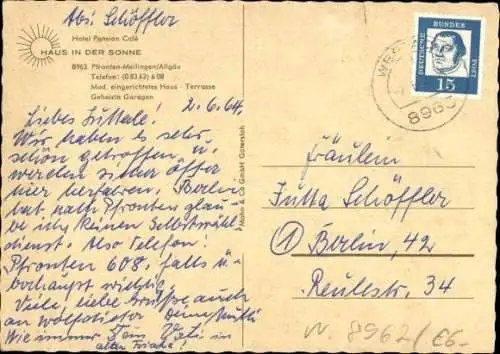 Abs: Schöffler
Hotel Pension Café
HAUS IN DER SONNE
8962 Pfronten-Meilingen/Allgäu
Telefon: (0 83 63) 6 08
Mod. eingerichtetes Haus · Terrasse
Geheizte Garagen
2.6.64,
Liebes Juttele!
Wir haben es sehr
schön getroffen u.
werden sicher öfter
hier herfahren. Berlin
hat nach Pfronten glau-
be ich keinen Selbstwähl-
dienst. Also Telefon:
Pfronten 608, falls ü-
berhaupt wichtig.
Viele liebe Grüsse auch
an
Wie immer Dein Vati in
alter Frische!
Mahn & Co GmbH Gütersloh
DEUTSCHE BUNDES POST
15
8965
Fräulein
Jutta Schöffler
1 Berlin, 42
Reulestr. 34
W-8962/€6-